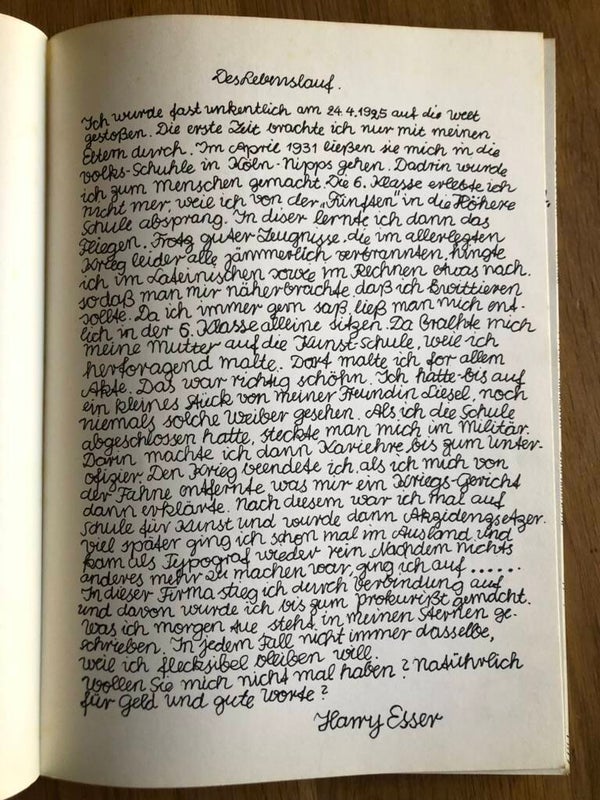 Des Lebenslauf.
Ich wurde fast unkentlich am 24.4.1925 auf die Welt
gestoßen. Die erste Zeit brachte ich nur mit meinen
Eltern durch. Im April 1931 ließen sie mich in die
Volks-Schuhle in Köln-Nipps gehen. Dadrin wurde
ich zum Menschen gemacht. Die 6. Klasse erlebte ich
nicht mer, weil ich von der „Fünften" in die Höhere
Schule absprang. In diser lernte ich dann das
Fliegen. Trotz guter Zeugnisse, die im allerlegten
Krieg leider alle jämmerlich verbrannten, hingte
ich im Lateinischen sowie im Rechnen etwas nach.
sodaß man mir näherbrachte daß ich kwittieren
sollte. Da ich immer gern saß, ließ man mich ent-
lich in der 6. Klasse alleine sitzen. Da brachte mich
meine Mutter auf die Kunst-Schule, weil ich
herforagend malte. Dort malte ich for allem
Akte. Das war richtig schöhn. Ich hatte bis auf
ein kleines Stück von meiner Freundin Liesel, noch
niemals solche Weiber gesehen. Als ich die Schule
abgeschlossen hatte, steckte man mich im Militär.
Darin machte ich dann Kariehre bis zum Unter-
ofizier. Den Krieg beendete ich, als ich mich von
der Fahne entfernte was mir ein Kriegs-Gericht
dann erklärte. Nach diesem war ich mal auf
Schule für Kunst und wurde dann Akzidengsetzer.
viel später ging ich schon mal im Ausland und
kam als Typograf wieder rein. Nachdem nichts
anderes mehr zu machen war, ging ich auf ......
In dieser Firma stieg ich durch Verbindung auf
und davon wurde ich bis zum Prokurißt gemacht.
Was ich morgen tue steht in meinen Sternen ge-
schrieben. In jedem Fall nicht immer dasselbe,
weil ich flecksibel bleiben will.
Wollen Sie mich nicht mal haben? Natührlich
für Geld und gute Worte?
Harry Esser